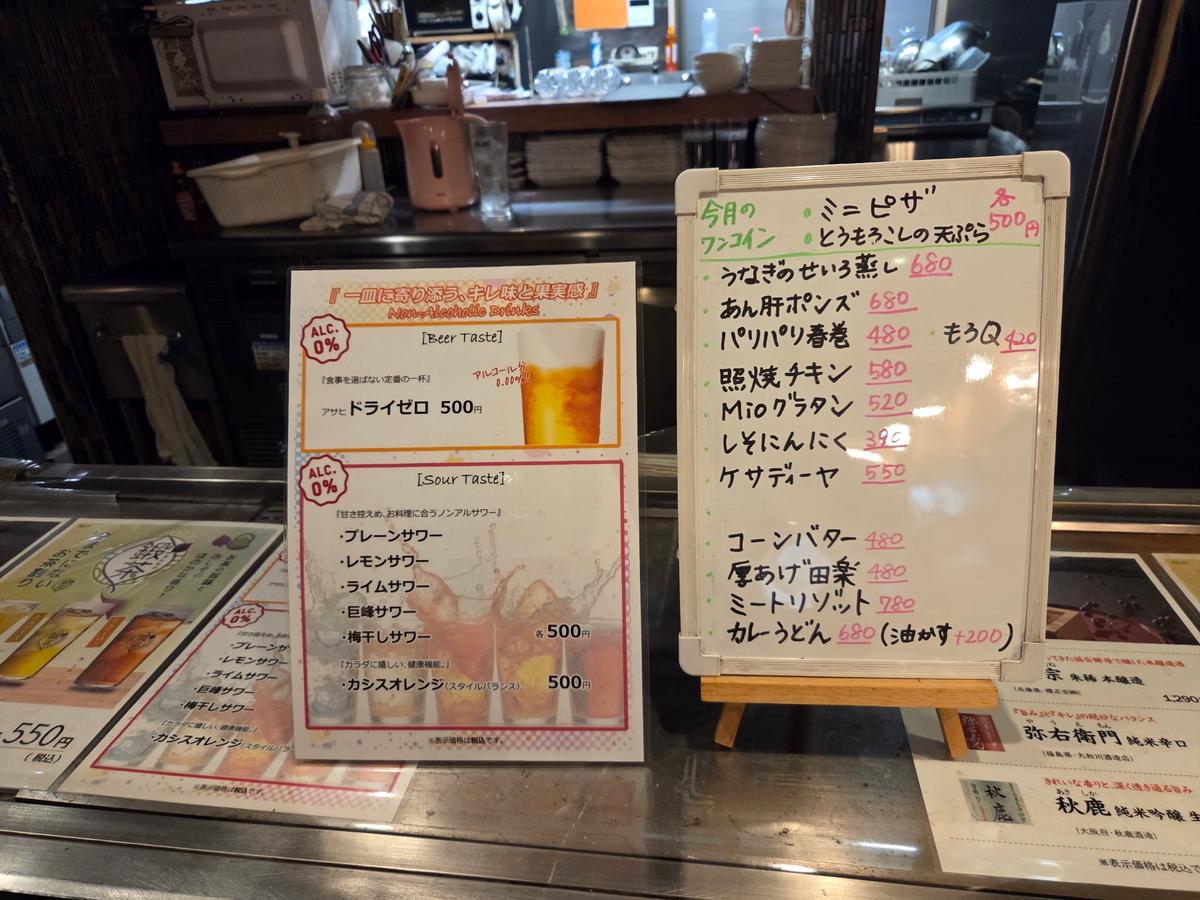 『一皿に寄り添う、キレ味と果実感』
Non-Alcoholic Drinks
ALC.
0%
[Beer Taste]
『食事を選ばない定番の一杯』
アルコール分
0.00%!
アサヒ ドライゼロ 500円
ALC.
0%
[Sour Taste]
『甘さ控えめ、お料理に合うノンアルサワー』
・プレーンサワー
・レモンサワー
・ライムサワー
・巨峰サワー
・梅干しサワー 各500円
『カラダに嬉しい、健康機能。』
・カシスオレンジ(スタイルバランス) 500円
※表示価格は税込です。
今月の
ワンコイン
・ミニピザ
・とうもろこしの天ぷら
各
500円
・うなぎのせいろ蒸し 680
・あん肝ポンズ 680
・パリパリ春巻 480 ・もろQ 420
・照焼チキン 580
・Mioグラタン 520
・しそにんにく 390
・ケサディーヤ 550
・コーンバター 480
・厚あげ田楽 480
・ミートリゾット 780
・カレーうどん 680 (油かす+200)
550円
(税込)
0%
・プレーンサ
・レモンサワー
・ライムサワー
・巨峰サワー
・梅干しサワー
・カシスオレンジ(スタイルバラ
※表示価格は税込です。
宗 朱稀 本醸造
(兵庫県・櫻正宗㈱)
1,290
『旨み』と『キレ』の絶妙なバランス
弥右衛門 純米辛口
(福島県・大和川酒造店)
きれいな香りと、深く透き通る旨み
あきしか
秋鹿 純米吟醸 生
(大阪府・秋鹿酒造)
秋鹿
※表示価格は税込で